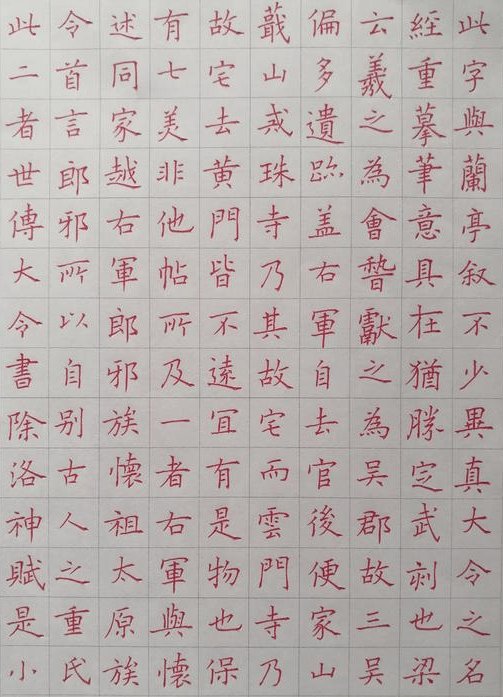 此字與蘭亭叙不少異真大令之名
經重摹筆意具在猶勝定武刻也梁
云羲之為會嵆獻之為吴郡故三吴
偏多遺跡盖右軍自去官後便家山
蕺山戒珠寺乃其故宅而雲門寺乃
故宅去黄門皆不逺宜有是物也保
有七美非他帖所及一者右軍與懐
述同家越右軍郎邪族懐祖太原族
令首言郎邪所以自别古人之重氏
此二者世傳大令書除洛神賦是小